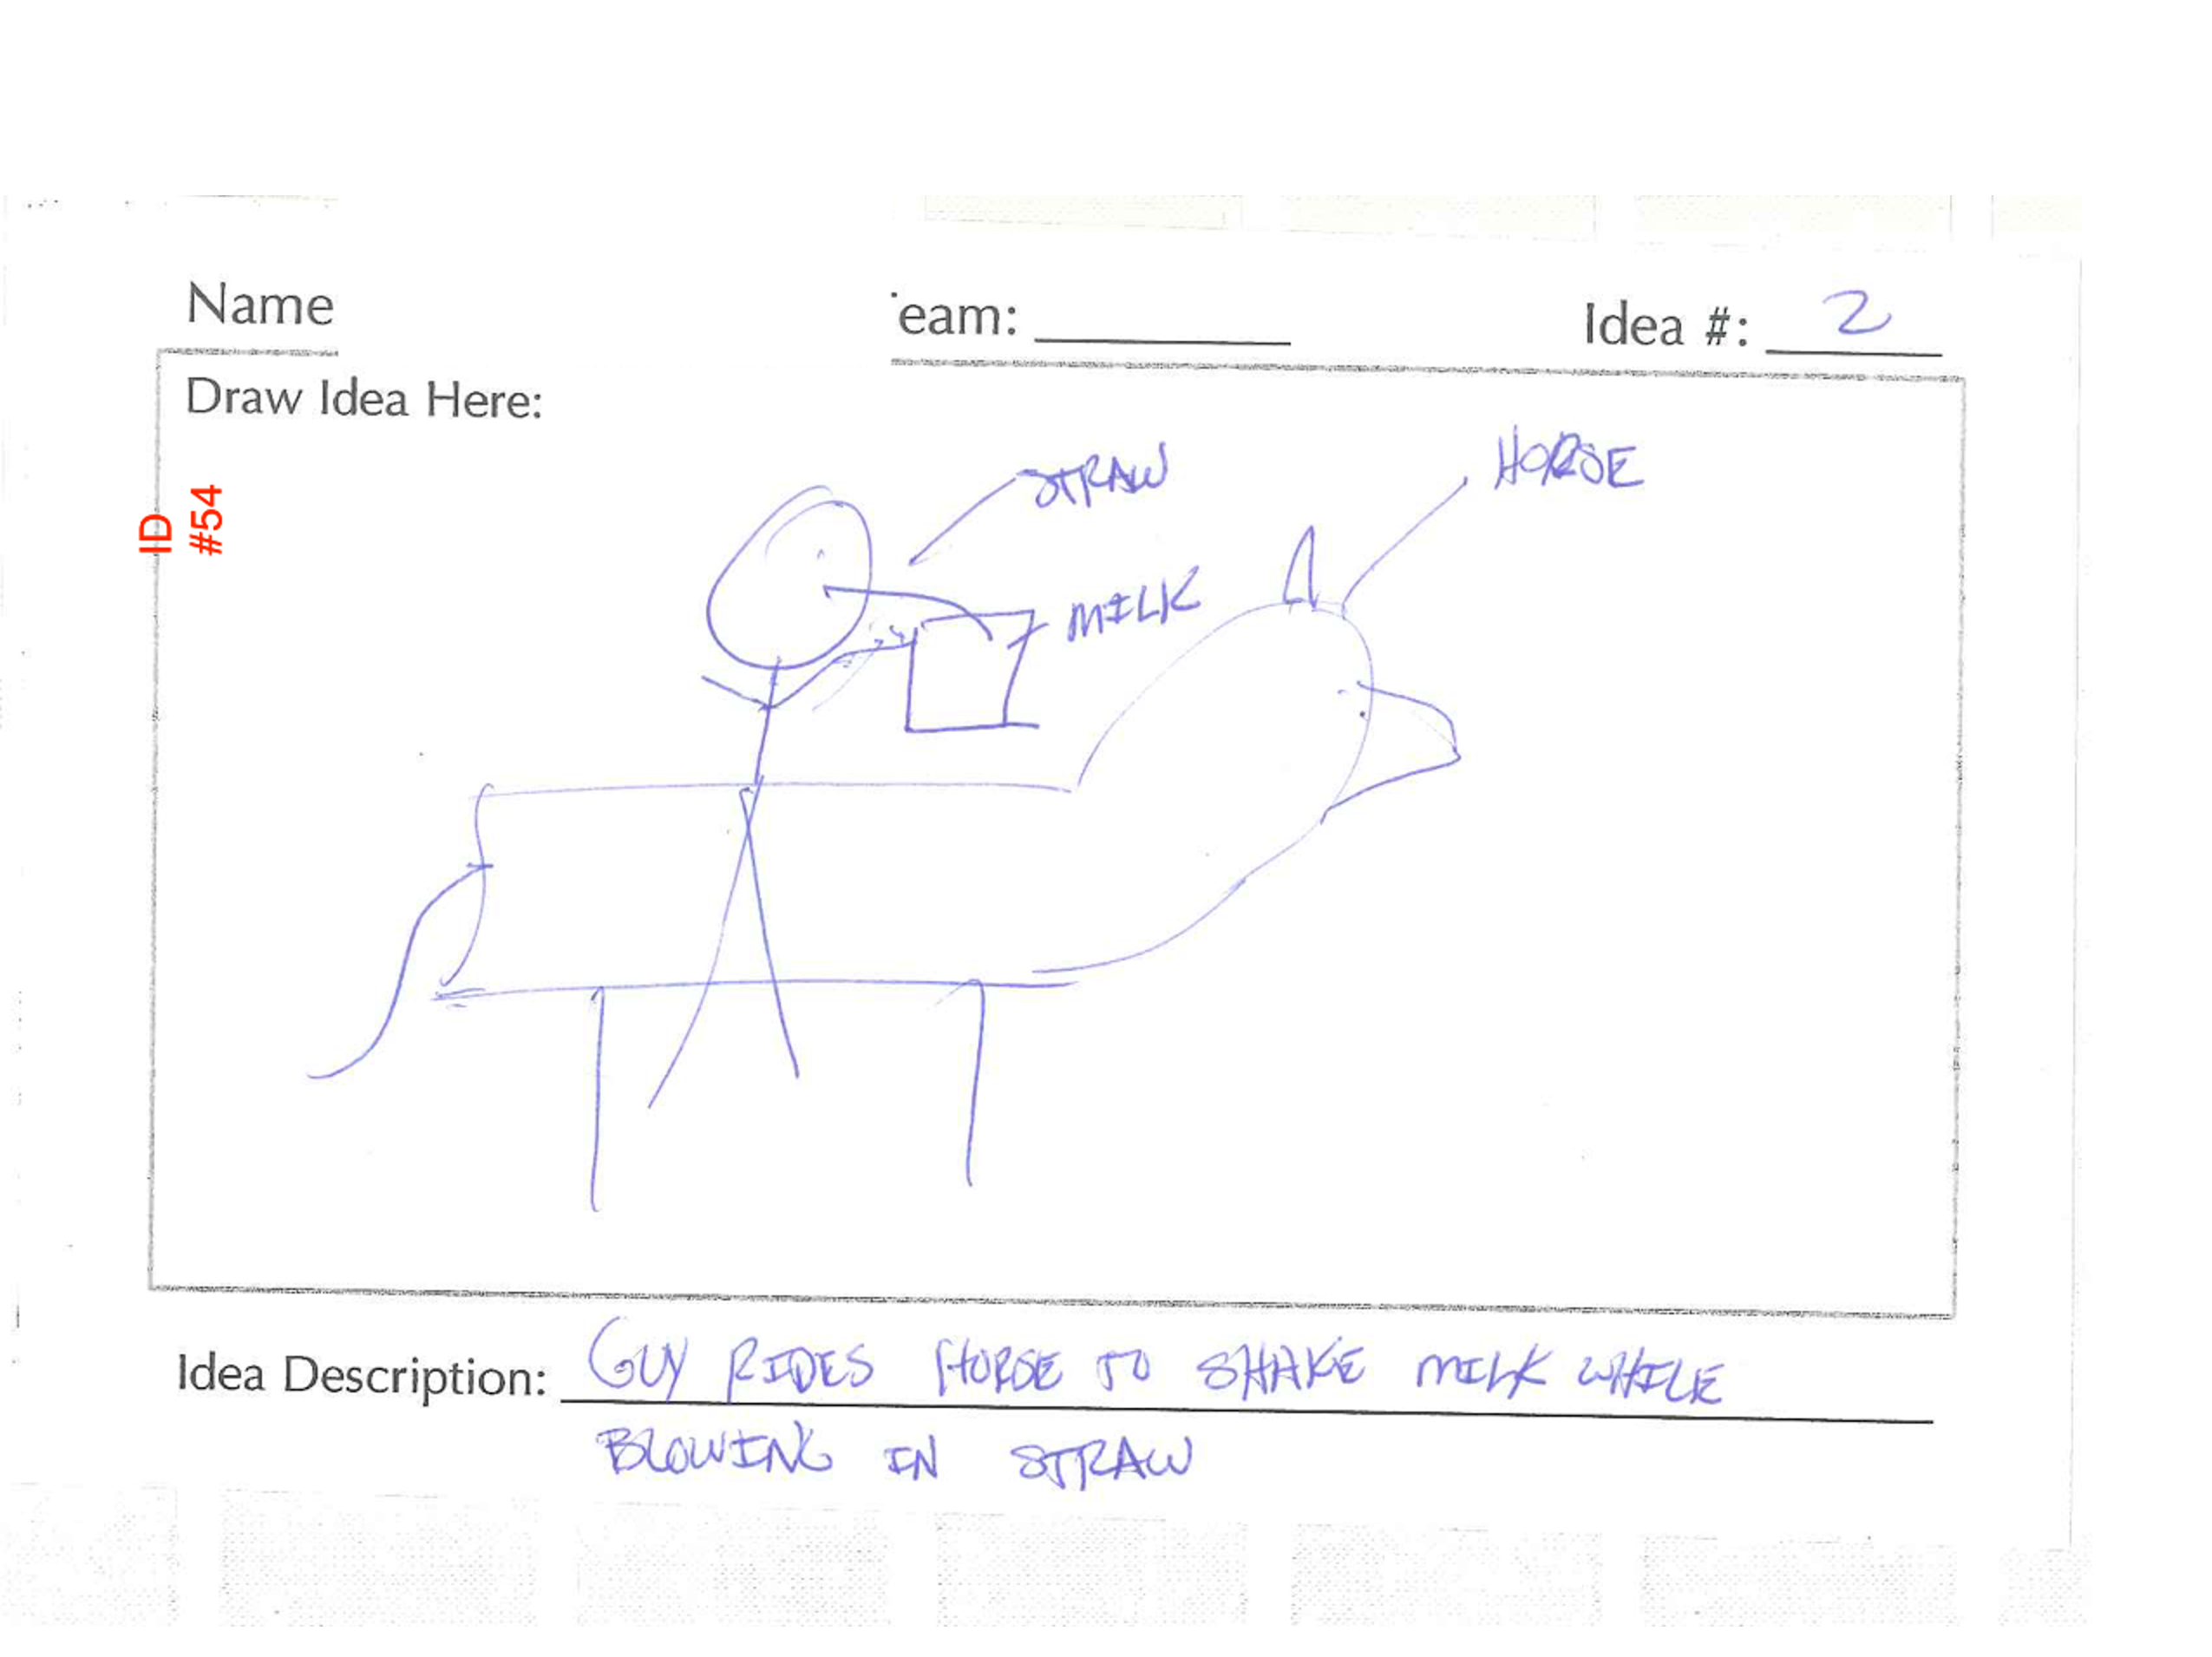 Name
eam:
Idea #: 2
Draw Idea Here:
ID
#54
STRAW
HORSE
MILK
Idea Description: GUY RIDES HORSE TO SHAKE MILK WHILE
BLOWING IN STRAW